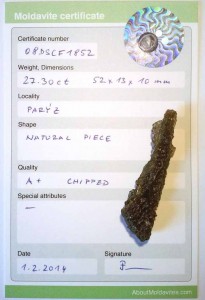 Moldavite certificate
Certificate number
08DSCF1852
Weight, Dimensions
27.30 ct 52 x 13 x 10 mm
Locality
PARYŽ
Shape
NATURAL PIECE
Quality
A+ CHIPPED
Special attributes
—
Date
Signature
1.2.2014
AboutMoldavites.com